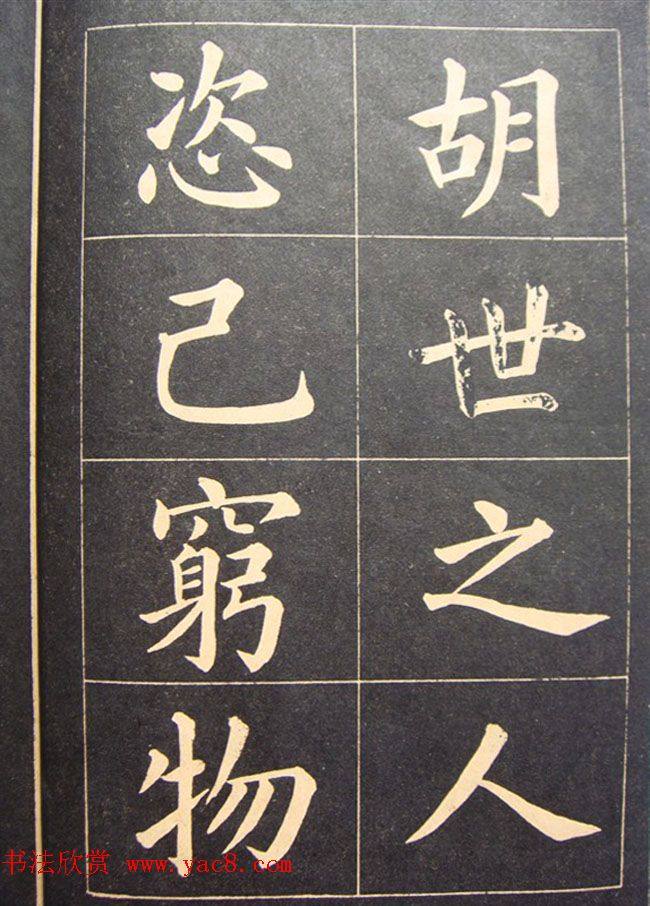 胡世之人
恣己窮物
书法欣赏 www.yac8.com